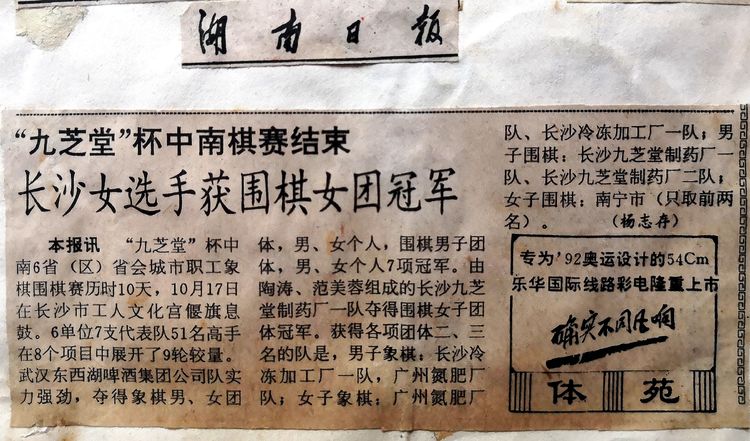 湖南日报
“九芝堂”杯中南棋赛结束
长沙女选手获围棋女团冠军
本报讯 “九芝堂”杯中
南6省（区）省会城市职工象
棋围棋赛历时10天，10月17日
在长沙市工人文化宫偃旗息
鼓。6单位7支代表队51名高手
在8个项目中展开了9轮较量。
武汉东西湖啤酒集团公司队实
力强劲，夺得象棋男、女团
体，男、女个人，围棋男子团
体，男、女个人7项冠军。由
陶涛、范美蓉组成的长沙九芝
堂制药厂一队夺得围棋女子团
体冠军。获得各项团体二、三
名的队是，男子象棋：长沙冷
冻加工厂一队，广州氮肥厂
队；女子象棋：广州氮肥厂
队、长沙冷冻加工厂一队；男
子围棋：长沙九芝堂制药厂一
队、长沙九芝堂制药厂二队；
女子围棋：南宁市（只取前两
名）。（杨志存）
专为’92奥运设计的54Cm
乐华国际线路彩电隆重上市
确实不同凡响
体苑